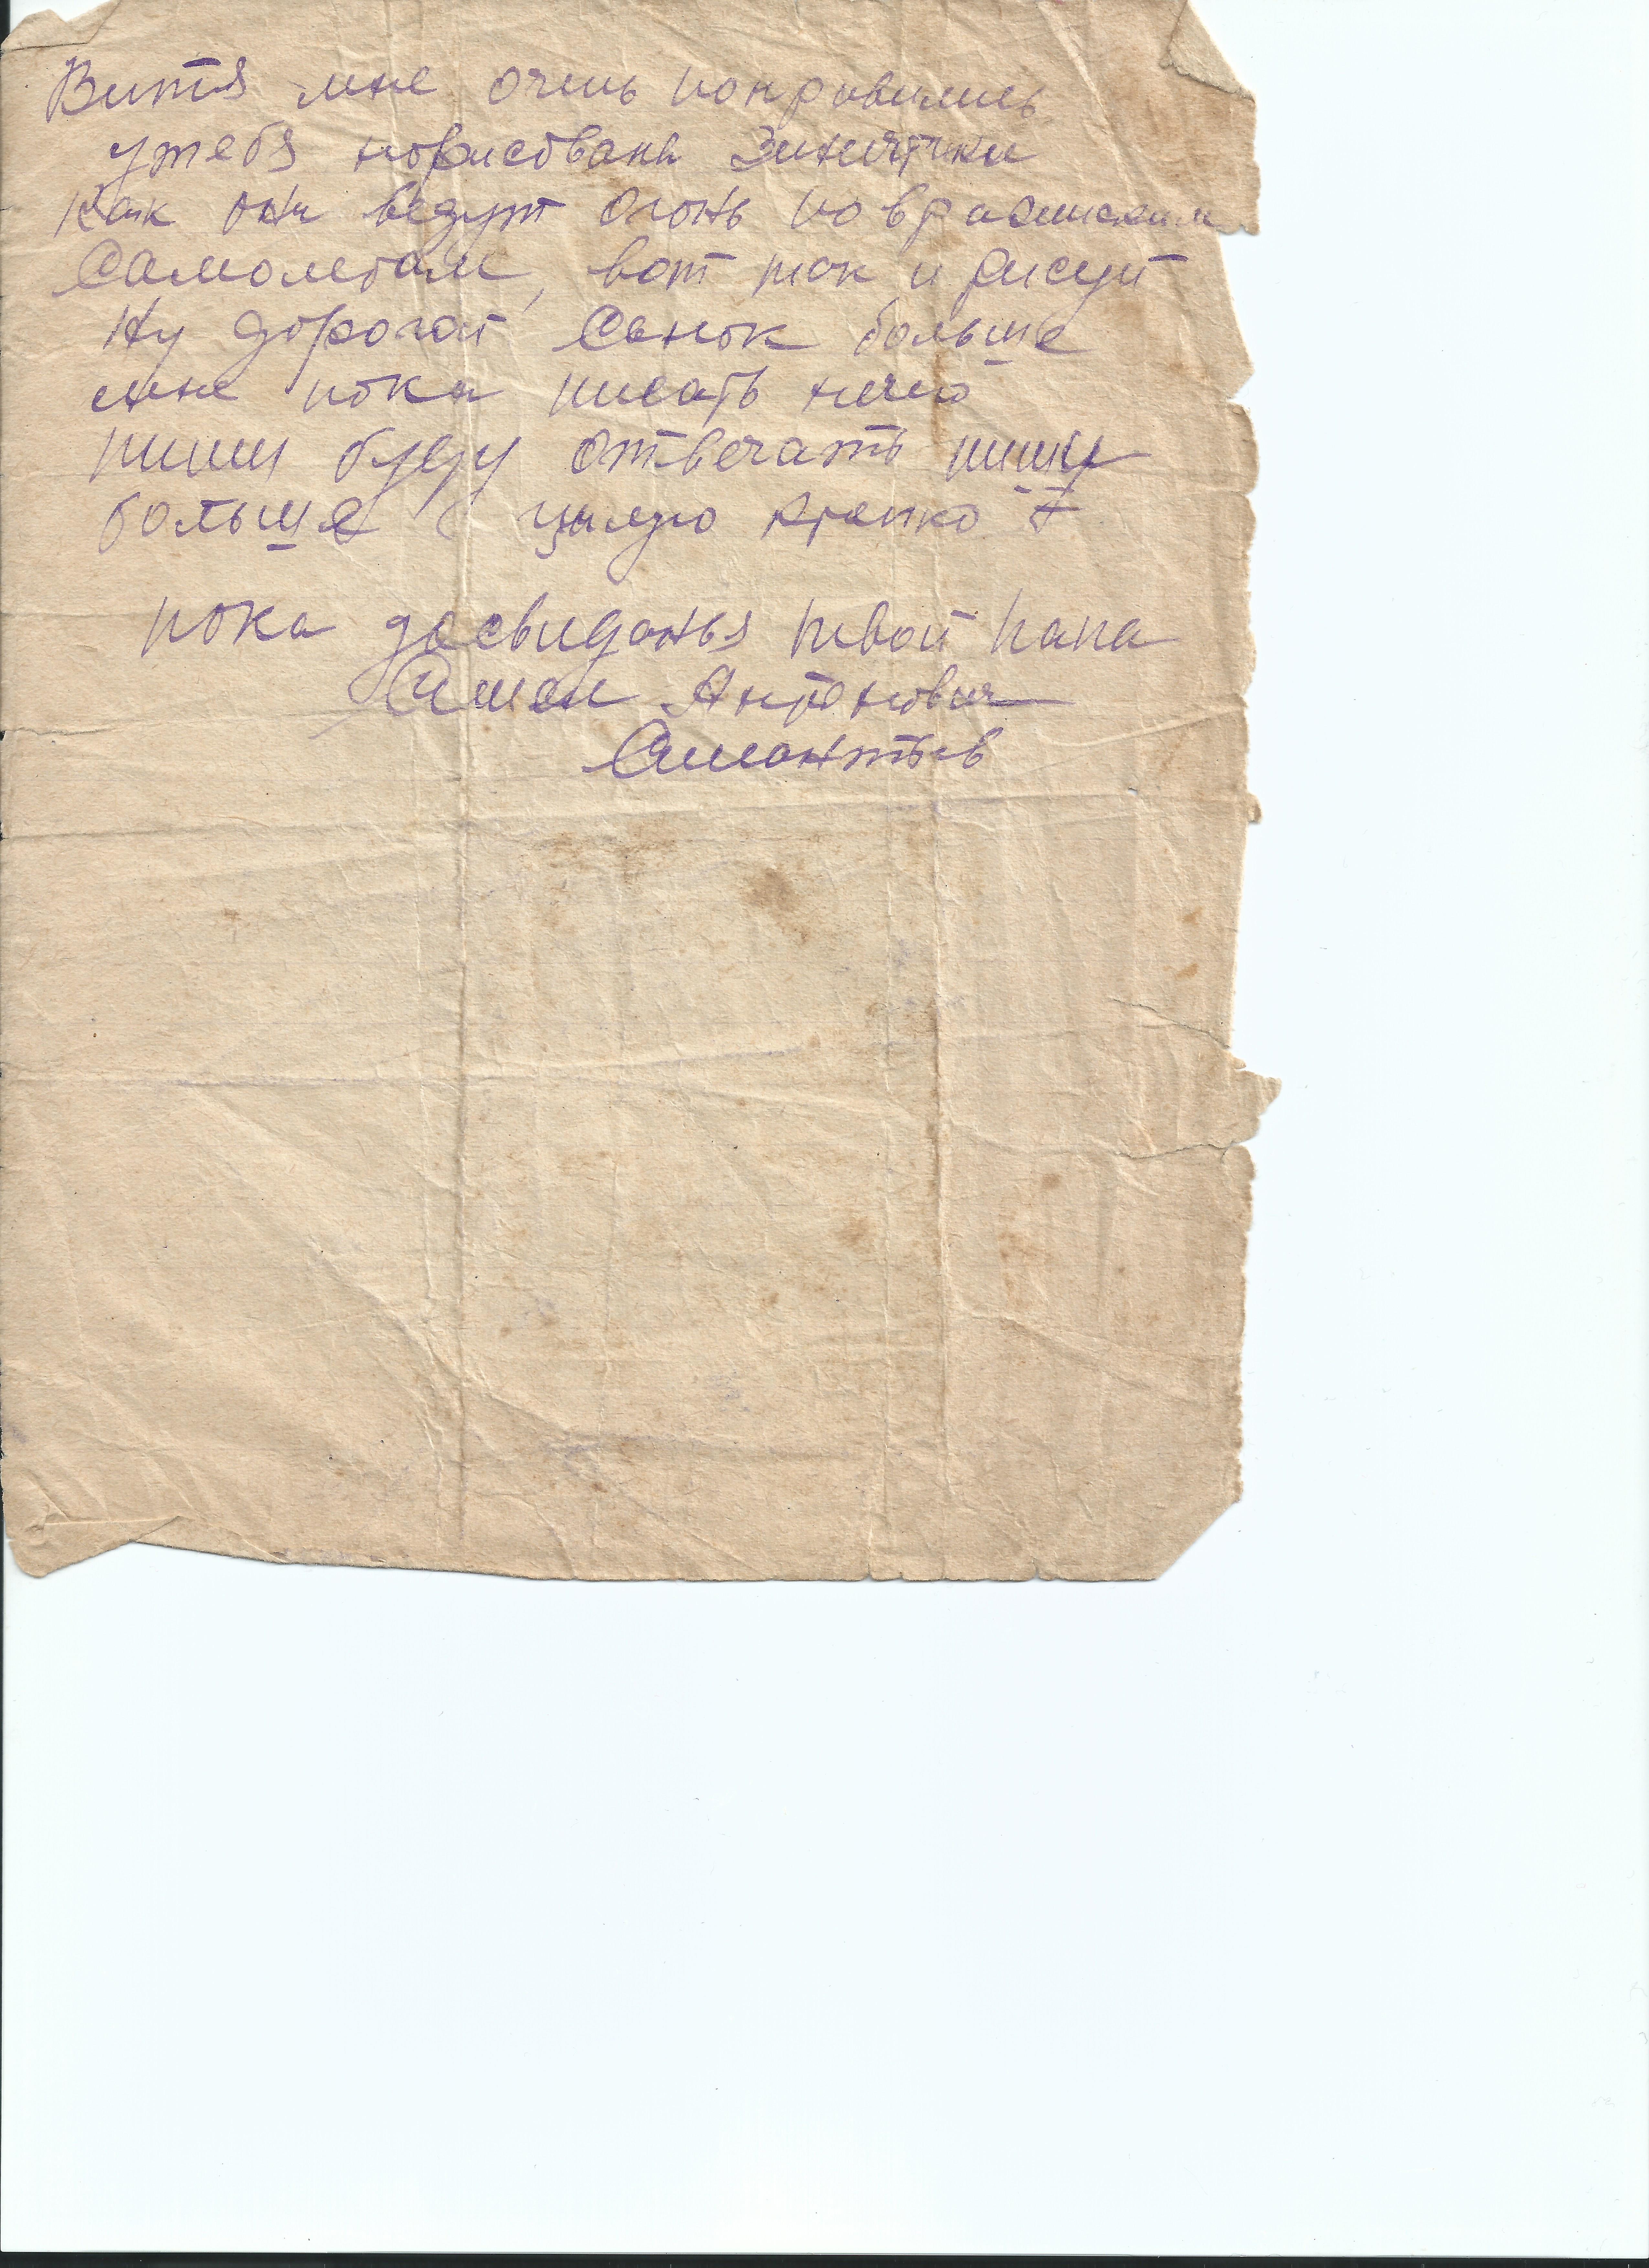 Витя мне очень понравились
у тебя нарисованы Зинитчики
Как они ведут огонь по вражиским
Самолетам, вот так и рисуй
Ну дорогой Сынок больше
мне пока писать нечего
пиши буду отвечать пиши
больше цылую крепко
пока досвиданья твой папа
Антонович